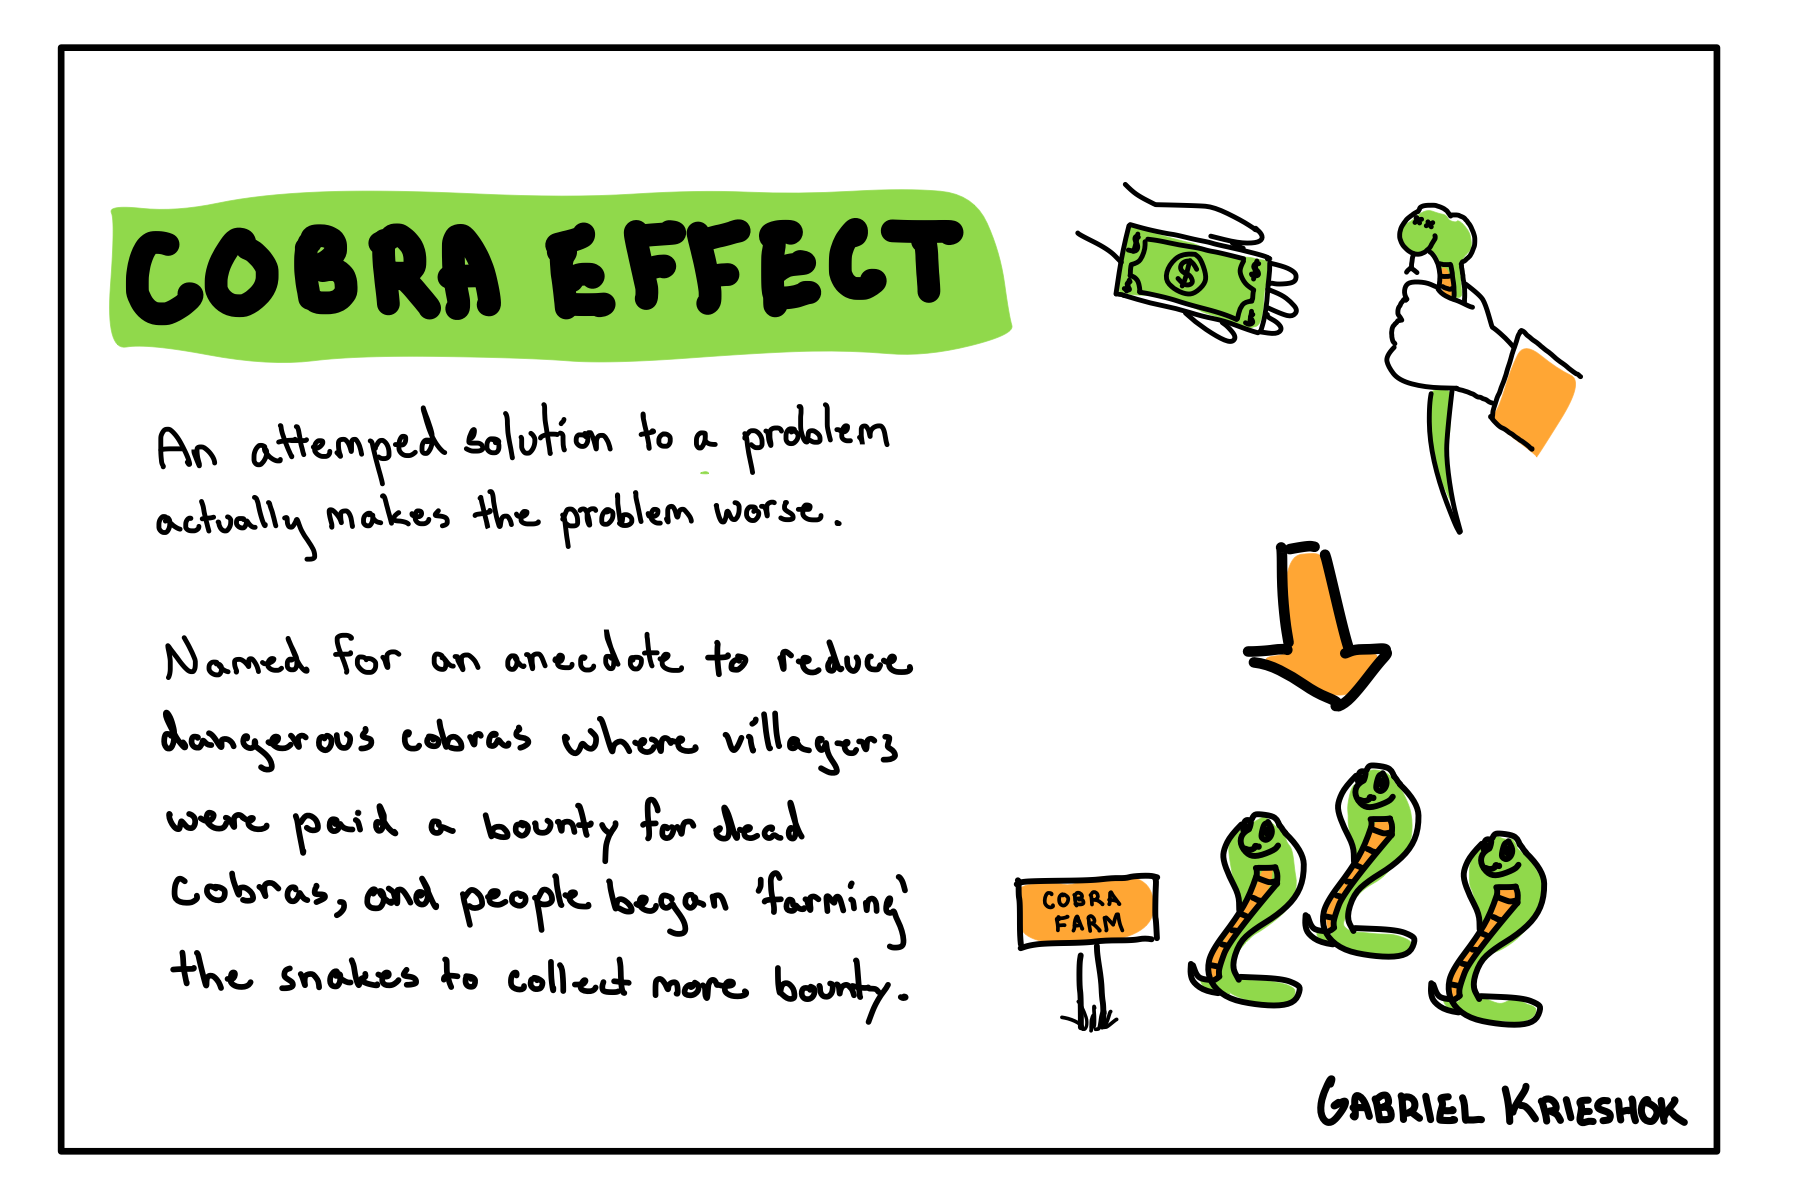 COBRA EFFECT
An attemped solution to a problem
actually makes the problem worse.
Named for an anecdote to reduce
dangerous cobras where villagers
were paid a bounty for dead
cobras, and people began 'farming'
the snakes to collect more bounty.
$ $ $ $ $
COBRA
FARM
GABRIEL KRIESHOK